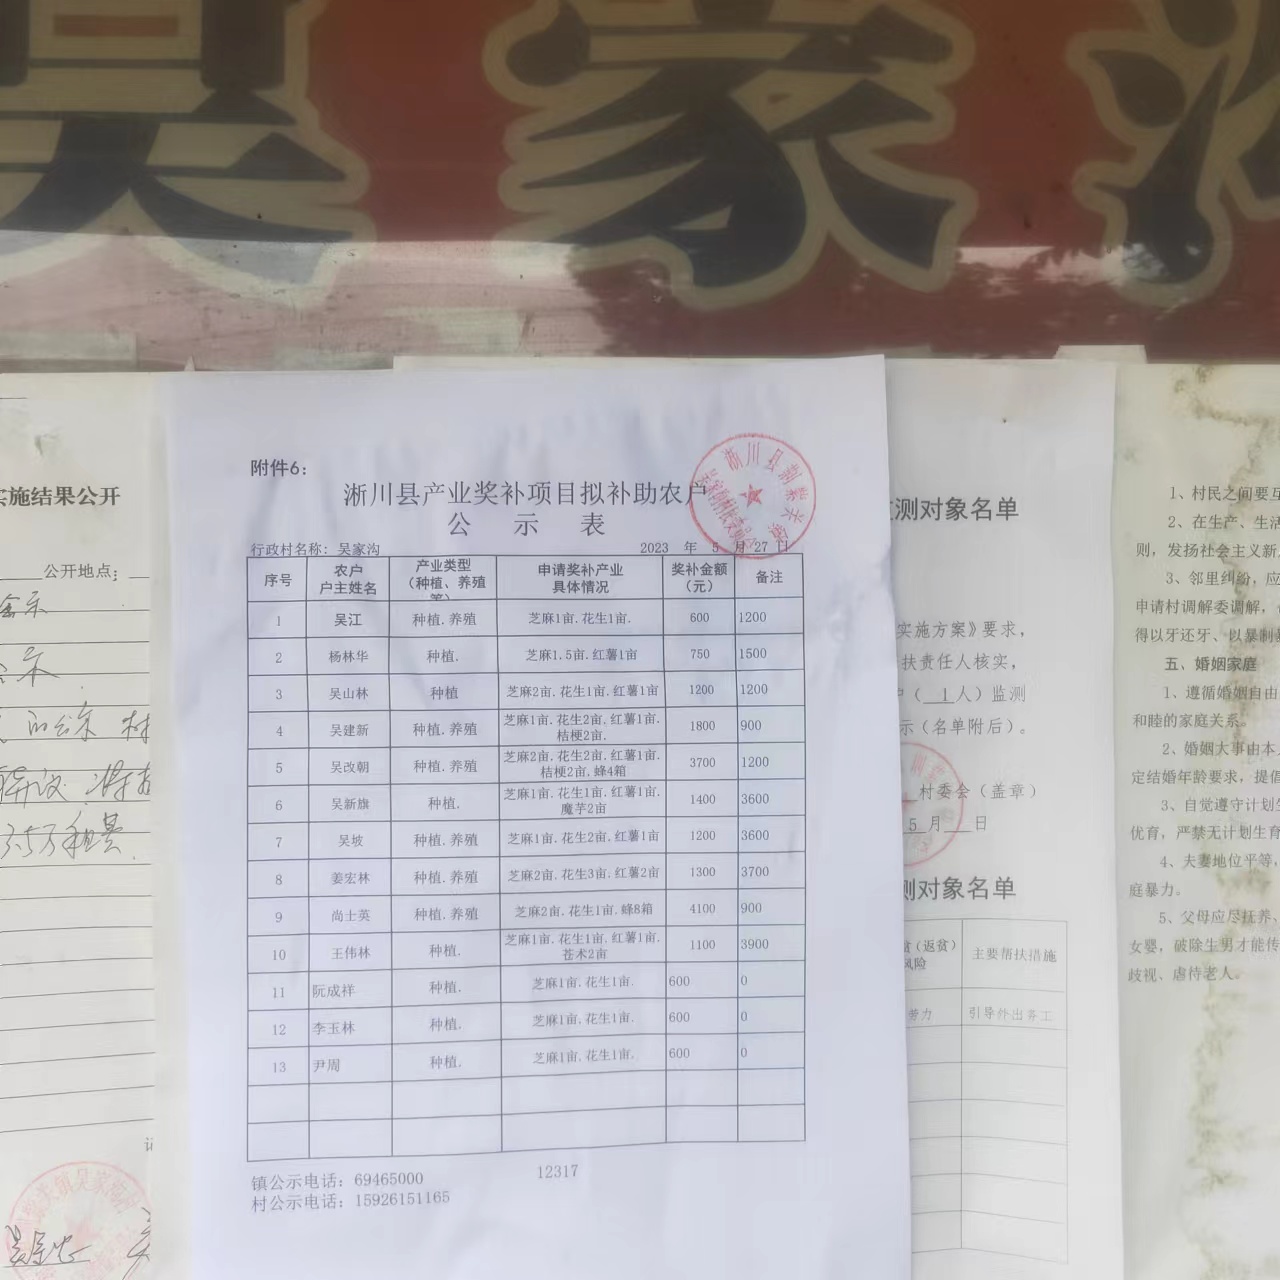 吴家沟
附件6:
淅川县产业奖补项目拟补助农户
公 示 表
行政村名称: 吴家沟 2023 年 5 月 27 日
序号 农户户主姓名 产业类型(种植、养殖等) 申请奖补产业具体情况 奖补金额(元) 备注
1 吴江 种植.养殖 芝麻1亩.花生1亩. 600 1200
2 杨林华 种植. 芝麻1.5亩.红薯1亩 750 1500
3 吴山林 种植 芝麻2亩.花生1亩.红薯1亩 1200 1200
4 吴建新 种植.养殖 芝麻1亩.花生2亩.红薯1亩.桔梗2亩. 1800 900
5 吴改朝 种植.养殖 芝麻2亩.花生2亩.红薯1亩.桔梗2亩.蜂4箱 3700 1200
6 吴新旗 种植. 芝麻1亩.花生1亩.红薯1亩.魔芋2亩 1400 3600
7 吴坡 种植.养殖 芝麻1亩.花生2亩.红薯1亩 1200 3600
8 姜宏林 种植.养殖 芝麻2亩.花生3亩.红薯2亩 1300 3700
9 尚士英 种植.养殖 芝麻2亩.花生1亩.蜂8箱 4100 900
10 王伟林 种植. 芝麻1亩.花生1亩.红薯1亩.苍术2亩 1100 3900
11 阮成祥 种植. 芝麻1亩.花生1亩. 600 0
12 李玉林 种植. 芝麻1亩.花生1亩. 600 0
13 尹周 种植. 芝麻1亩.花生1亩. 600 0
12317
镇公示电话: 69465000
村公示电话: 15926151165
实施结果公开
公开地点:
测对象名单
实施方案》要求,
扶责任人核实,
(1人)监测
示(名单附后)。
村委会(盖章)
5月 日
测对象名单
(返贫)风险 主要帮扶措施
劳力 引导外出务工
1、村民之间要互
2、在生产、生活
则,发扬社会主义新
3、邻里纠纷,应
申请村调解委调解,
得以牙还牙、以暴制暴
五、婚姻家庭
1、遵循婚姻自由
和睦的家庭关系。
2、婚姻大事由本人
定结婚年龄要求,提倡
3、自觉遵守计划生
优育,严禁无计划生育
4、夫妻地位平等,
庭暴力。
5、父母应尽抚养、
女婴,破除生男才能传
歧视、虐待老人。